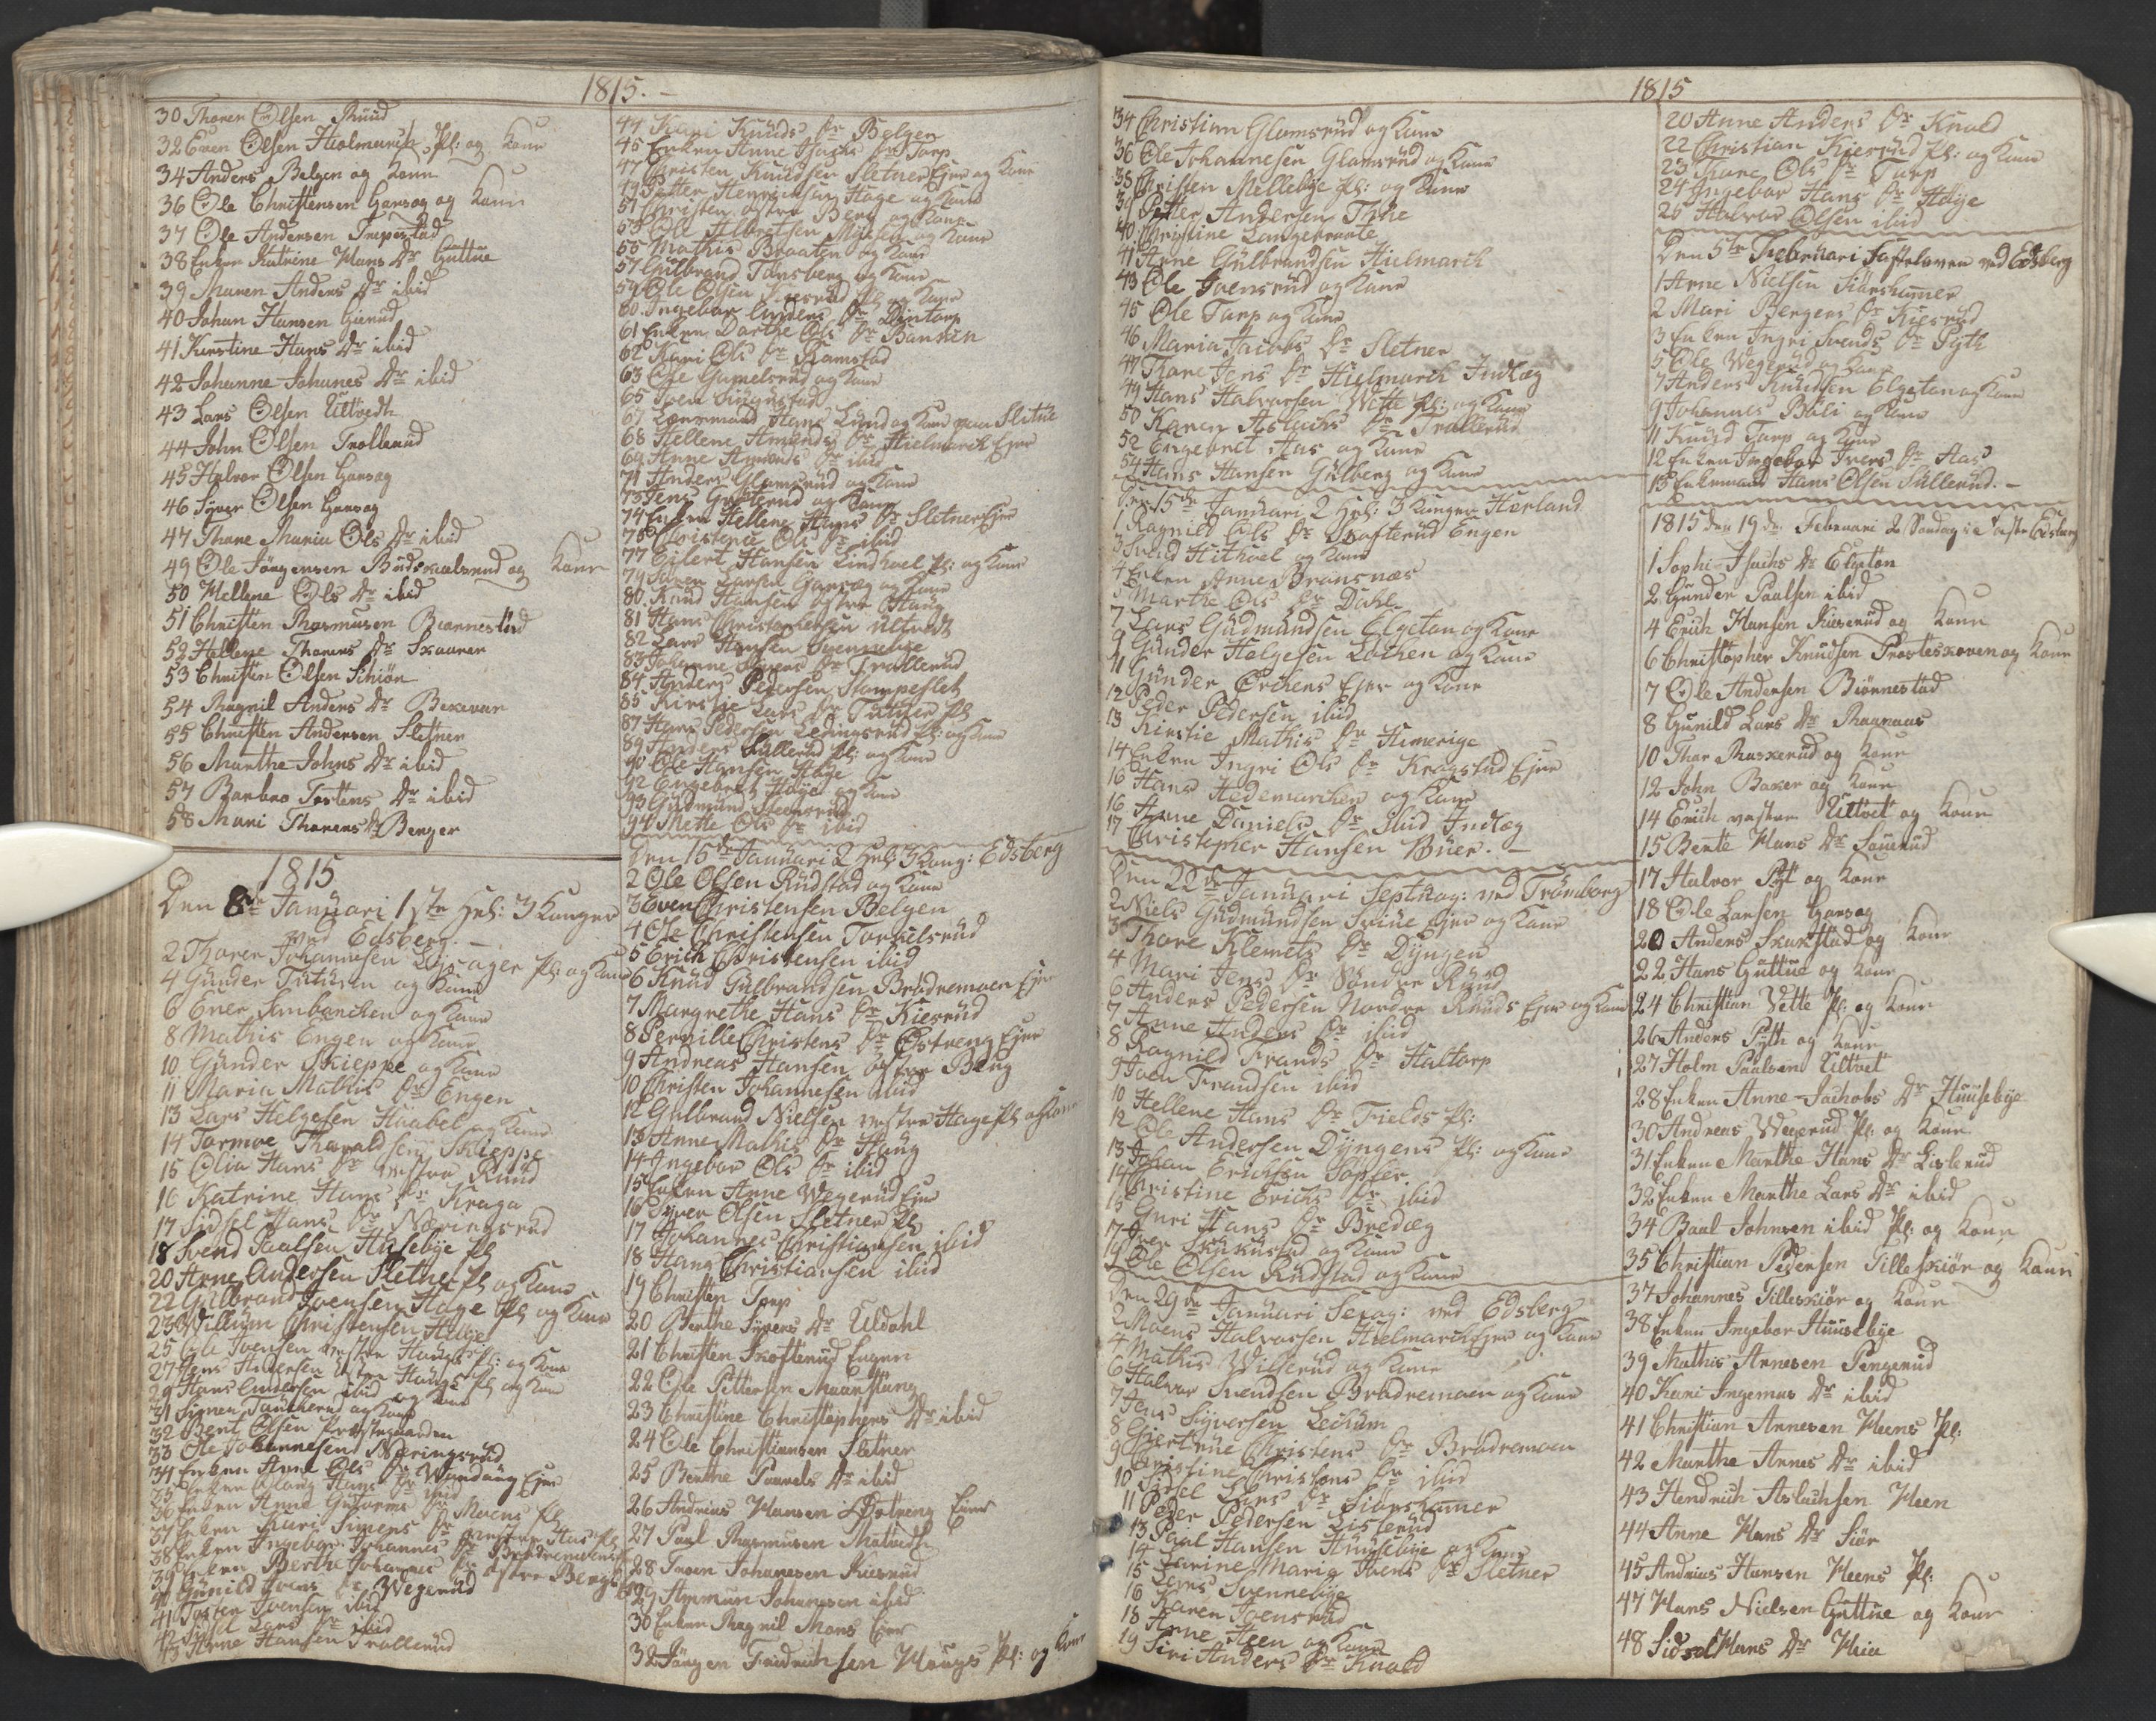 1815.
30 Thorer Olsen Ruud
32 Even Olsen Hielmarck Pl: og Kone
34 Anders Belgen og Kone
36 Ole Christensen Garsog og Kone
37 Ole Andersen Trepestad
38 Enken Katrine Hans Dr Guttue
39 Maren Anders Dr ibid
40 Johan Hansen Gierud
41 Kirstine Hans Dr ibid
42 Johanne Johanes Dr ibid
43 Lars Olsen Ultvedt
44 John Olsen Trollerud
45 Halvor Olsen Garsog
46 Syver Olsen Garsog
47 Thore Maria Ols Dr ibid
49 Ole Jörgensen Budskaalsrud og Kone
50 Hellene Ols Dr ibid
51 Christen Rasmusen Biønnestad
52 Hellene Thorers Dr Skaaren
53 Christen Olsen Schiör
54 Ragnil Anders Dr Bexevar
55 Christen Andersen Sletner
56 Marthe Johns Dr ibid
57 Barbro Tostens Dr ibid
58 Mari Thorers Dr Berger
1815
Den 8de Januari 1ste Hel: 3 Konger
ved Edsberg.
2 Thorer Johannesen Lysager Pl: og Kone
4 Gunder Tuturen og Kone
6 Ener Limbæcken og Kone
8 Mathis Engen og Kone
10 Gunder Skieppe og Kone
11 Maria Mathis Dr Engen
13 Lars Helgesen Haabel og Kone
14 Tormoe Thoraldsen Skieppe
15 Olia Hans Dr vestre Ruud
16 Katrine Hans Dr Kraga
17 Sidsel Hans Dr Næringsrud
18 Svend Paalsen Husebye Pl
20 Arne Andersen Sletner Pl og Kone
22 Gulbrand Joensen Hage Pl og Kone
23 Willum Christensen Helge
25 Ole Joensen vestre Haugs Pl: og Kone
27 Jens Andersen østre Haugs Pl og Kone
29 Hans Andersen ibid og Kone
31 Simen Taukerud og Kone
32 Bent Olsen Præstegaarden
33 Ole Johannesen Næringsrud
34 Enken Anne Ols Dr Wandaug Ejer
35 Enken Olaug Hans Dr ibid
36 Enken Anne Guttorms Dr Moens Pl
37 Enken Kari Simens Dr vestre Haes Pl
38 Enken Ingebor Johannes Dr Brødremoens
39 Enken Berthe Johannes Dr østre Bergs
40 Gunild Joens Dr Wegerud
41 Tosten Joensen ibid
42 Sidsel Lars Dr ibid
43 Arne Hansen Trollerud
44 Kari Knuds Dr Belgen
45 Enken Anne Isachs Dr Torp
47 Christen Knudsen Sletner Ejer og Kone
49 Petter Henrichsen Hage og Kone
51 Christen østre Berg og Kone
53 Ole Albretsen Myhren og Kone
55 Mathis Braaten og Kone
57 Gulbrand Tonsberg og Kone
59 Ole Olsen Kiesrud Pl og Kone
60 Ingebor Anders Dr Dintorp
61 Enken Dorthe Ols Dr Bancken
62 Kari Ols Dr Ramstad
63 Ole Gumelsrud og Kone
65 Joen Kiugustad
67 Lænsmand Hans Lund og Kone paa Slitue
68 Hellene Amunds Dr Hielmarck Ejer
69 Anne Amunds Dr ibid
71 Anders Glomsrud og Kone
73 Jens Grøtterud og Kone
74 Enken Hellene Hans Dr Sletner Ejer
75 Christense Ols Dr ibid
77 Eilert Hansen Lindhoel Pl: og Kone
79 Søren Larsen Garsæg og Kone
80 Knud Hansen østre Haug
81 Hans Christophersen Ultvedt
82 Lars Hansen Svennebye
83 Johanne Syvers Dr Trollerud
84 Anders Pedersen Stompeflet
85 Kirstie Lars Dr Tutuer Pl
87 Hans Pedersen Ledingsrud Pl: og Kone
89 Anders Sullerud Pl: og Kone
90 Ole Hansen Høye
92 Engebret Høye og Kone
93 Gudmund Steensrud
94 Mette Ols Dr ibid
Den 15de Januari 2 Hel: 3 Kong: Edsberg
2 Ole Olsen Rudstad og Kone
3 Even Christensen Belgen
4 Ole Christensen Torkelsrud
5 Erich Christensen ibid
6 Knud Gulbrandsen Brødremoen Ejer
7 Margrethe Hans Dr Kiesrud
8 Pernille Christens Dr Østreng Ejer
9 Andreas Hansen østre Berg
10 Christen Johannesen ibid
12 Gulbrand Nielsen vestre Hage Pl og Kone
13 Anne Mathis Dr Haug
14 Ingebor Ols Dr ibid
15 Enken Anne Wegerud Ejer
16 Syver Olsen Sletner Pl
17 Johannes Christiansen ibid
18 Hans Christiansen ibid
19 Christen Torp
20 Berthe Syvers Dr Uldahl
21 Christen Skofterud Engen
22 Ole Pettersen Maanstang
23 Christine Christophers Dr ibid
24 Ole Christiansen Sletner
25 Berthe Pauvels Dr ibid
26 Andreas Hansen Østreng Eier
27 Paul Rasmusen Maltvedt
28 Troen Johanesen Kiesrud
29 Ammun Johanesen ibid
30 Enken Ragnil Mons Eier
32 Jörgen Fridrichsen Haugs Pl: og Kone
1815
34 Christian Glomsrud og Kone
36 Ole Johannesen Glomsrud og Kone
38 Christen Mellebye Pl: og Kone
39 Petter Andersen Thue
40 Christine Langebraate
41 Arne Gulbrandsen Hielmarck
43 Ole Joensrud og Kone
45 Ole Torp og Kone
46 Maria Jacobs Dr Sletner
47 Thore Jens Dr Hielmarck Indlæg
49 Hans Halvorsen Wette Pl: og Kone
50 Karen Aslachs Dr Trollerud
52 Engebret Aas og Kone
54 Hans Hansen Gulberg og Kone
Den 15de Januari 2 Hel: 3 Konger Herland
1 Ragnild Ols Dr Skofterud Engen
3 Svend Hithoel og Kone
4 Enken Anne Bransnæs
5 Marthe Ols Dr Dahl
7 Lars Gudmundsen Elgeton og Kone
9 Gunder Helgesen Løcken og Kone
11 Gunder Erichens Ejer og Kone
12 Peder Pedersen ibid
13 Kirstie Mathis Dr Himerige
14 Enken Ingri Ols Dr Kragstad Ejer
16 Hans Hedemarcken og Kone
16 Anne Daniels Dr ibid Indlæg
17 Christopher Hansen Buer.
Den 22de Januari Septuag: ved Trömborg
2 Niels Gudmundsen Sviue Ejer og Kone
3 Thore Klemets Dr Dyngen
4 Mari Jens Dr Søndre Ruud
6 Anders Pedersen Nordre Ruuds Ejer og Kone
7 Anne Anders Dr ibid
8 Ragnild Frands Dr Haltorp
9 Joen Frandsen ibid
10 Hellene Hans Dr Fields Pl:
12 Ole Andersen Dyngens Pl: og Kone
13 Johan Erichsen Topper.
14 Christine Erichs Dr ibid
15 Guri Hans Dr Bredæg
17 Iver Skukustad og Kone
19 Ole Olsen Rudstad og Kone
Den 29de Januari Sexag: ved Edsberg
2 Moens Halvorsen Hielmarck Ejer og Kone
4 Mathis Wilterud og Kone
6 Halvor Svendsen Brødremoen og Kone
7 Jens Syversen Leckum
8 Giertrue Christens Dr Brødremoen
9 Christine Christens Dr ibid
10 Sidsel Lars Dr Siørshamer
11 Peder Pedersen Listerud
13 Paul Hansen Huusebye og Kone
14 Karine Maria Joens Dr Sletner
15 Lars Svennebye
16 Karen Joensrud
18 Arne Heen og Kone
19 Siri Anders Dr Knold
1815
20 Anne Anders Dr Knold
22 Christian Kiesrud Pl: og Kone
23 Thore Ols Dr Torp
24 Ingebor Hans Dr Høye
25 Halvor Olsen ibid
Den 5te Februari Fastelaven ved Edsberg
1 Arne Nielsen Siørshamer
2 Mari Bergers Dr Kiesrud
3 Enken Ingri Svends Dr Pytt
5 Ole Wegerud og Kone
7 Anders Knudsen Elgeton og Kone
9 Johannes Bali og Kone
11 Knud Torp og Kone
12 Enken Ingebor Ivers Dr Aas
13 Enkemand Hans Olsen Sullerud.
1815 den 19de Februari 2 Søndag i Faste Edsberg
1 Sophi Isachs Dr Elgeton
2 Gunder Paalsen ibid
4 Erich Hansen Kieserud og Kone
6 Christopher Knudsen Prosteskoven og Kone
7 Ole Andersen Biönnestad
8 Gunild Lars Dr Ragnaas
10 Thor Buskerud og Kone
12 John Boxer og Kone
14 Erich vestre Ultvet og Kone
15 Bente Hans Dr Sauerud
17 Halvor Pyt og Kone
18 Ole Larsen Garsog
20 Anders Skukstad og Kone
22 Hans Guttue og Kone
24 Christian Vette Pl: og Kone
26 Anders Pyth og Kone
27 Holm Paalsen Ultvet
28 Enken Anne Jachobs Dr Huusebye
30 Andreas Wegerud Pl: og Kone
31 Enken Marthe Hans Dr Listerud
32 Enken Marthe Lars Dr ibid
34 Baal Johnsen ibid Pl: og Kone
35 Christian Pedersen Silleskiör og Kone
37 Johannes Tilleskiör og Kone
38 Enken Ingebor Huusebye
39 Mathis Arnesen Pengerud
40 Kari Ingemus Dr ibid
41 Christian Arnesen Heens Pl:
42 Marthe Arnes Dr ibid
43 Hendrich Aslachsen Heen
44 Anne Hans Dr Siör
45 Andreas Hansen Heens Pl:
47 Hans Nielsen Guttue og Kone
48 Sidsel Hans Dr Heie